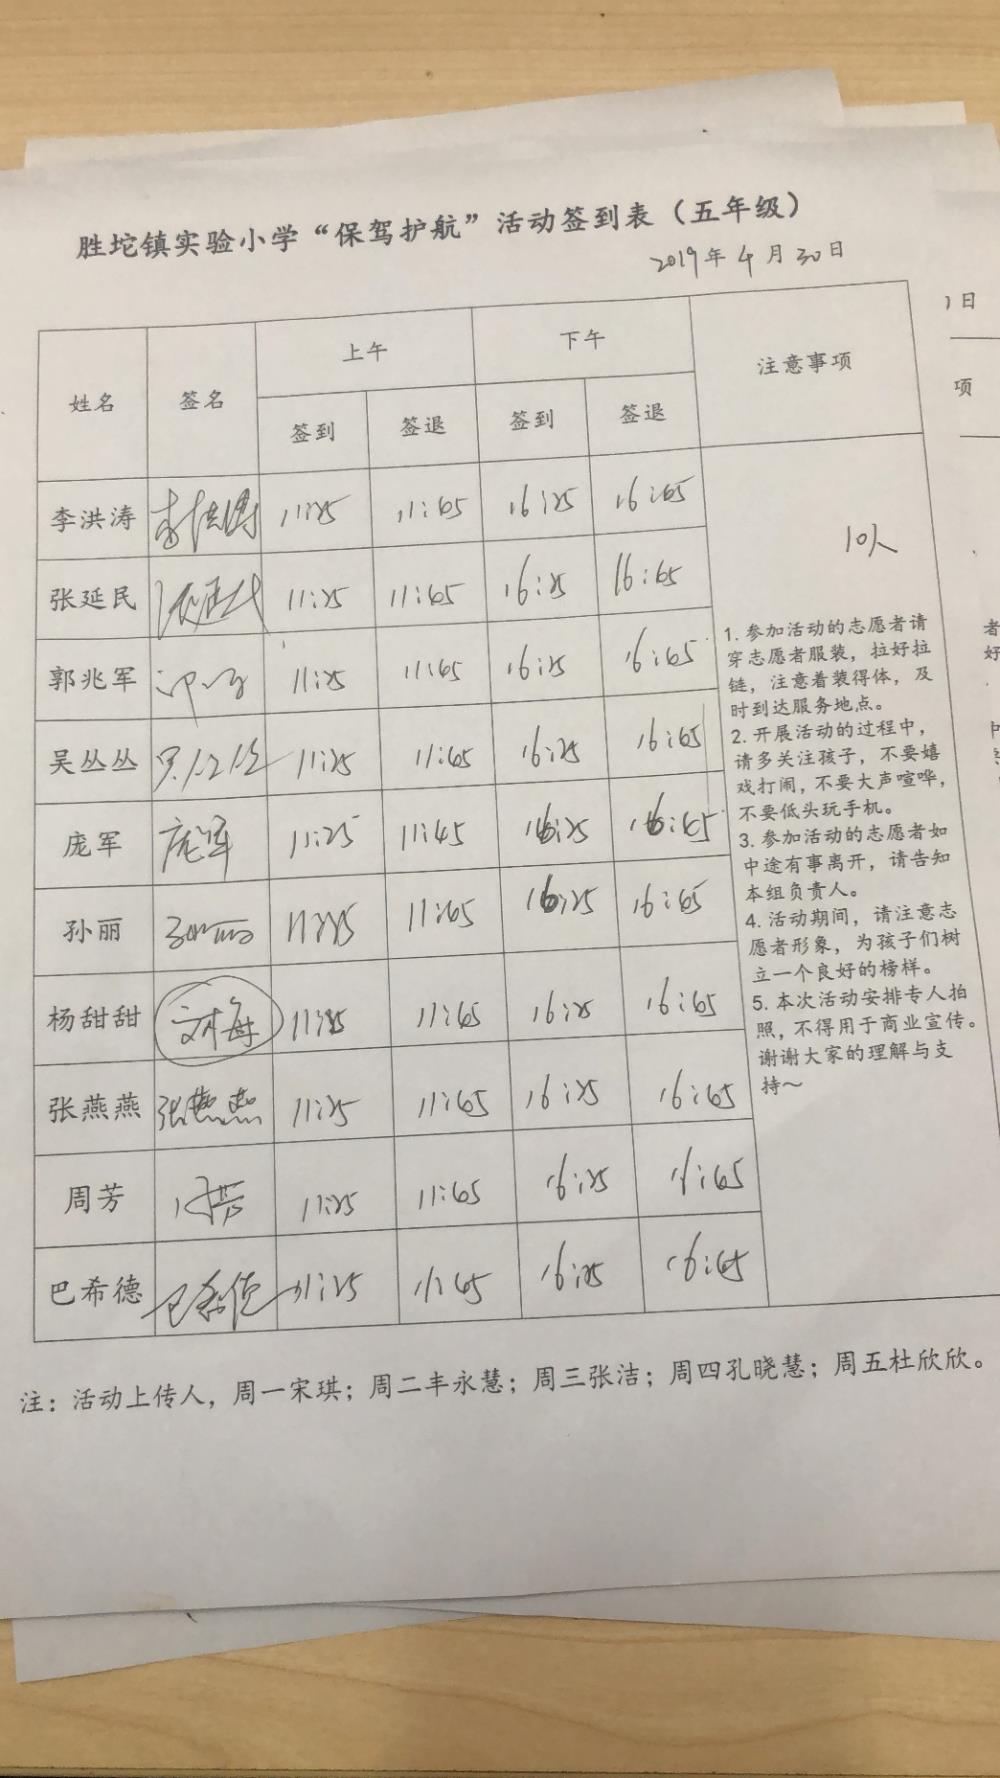 胜坨镇实验小学“保驾护航”活动签到表（五年级）
2019年4月30日
姓名 签名 上午 下午 注意事项
签到 签退 签到 签退
李洪涛 李洪涛 11:25 11:45 16:25 16:45
张延民 张延民 11:25 11:45 16:25 16:45
郭兆军 11:25 11:45 16:25 16:45
吴丛丛 11:25 11:45 16:25 16:45
庞军 庞军 11:25 11:45 16:25 16:45
孙丽 11:25 11:45 16:25 16:45
杨甜甜 11:25 11:45 16:25 16:45
张燕燕 张燕燕 11:25 11:45 16:25 16:45
周芳 周芳 11:25 11:45 16:25 16:45
巴希德 巴希德 11:25 11:45 16:25 16:45
10人
1.参加活动的志愿者请
穿志愿者服装，拉好拉
链，注意着装得体，及
时到达服务地点。
2.开展活动的过程中，
请多关注孩子，不要嬉
戏打闹，不要大声喧哗，
不要低头玩手机。
3.参加活动的志愿者如
中途有事离开，请告知
本组负责人。
4.活动期间，请注意志
愿者形象，为孩子们树
立一个良好的榜样。
5.本次活动安排专人拍
照，不得用于商业宣传。
谢谢大家的理解与支
持～
注：活动上传人，周一宋琪；周二丰永慧；周三张洁；周四孔晓慧；周五杜欣欣。
日
项
者
好